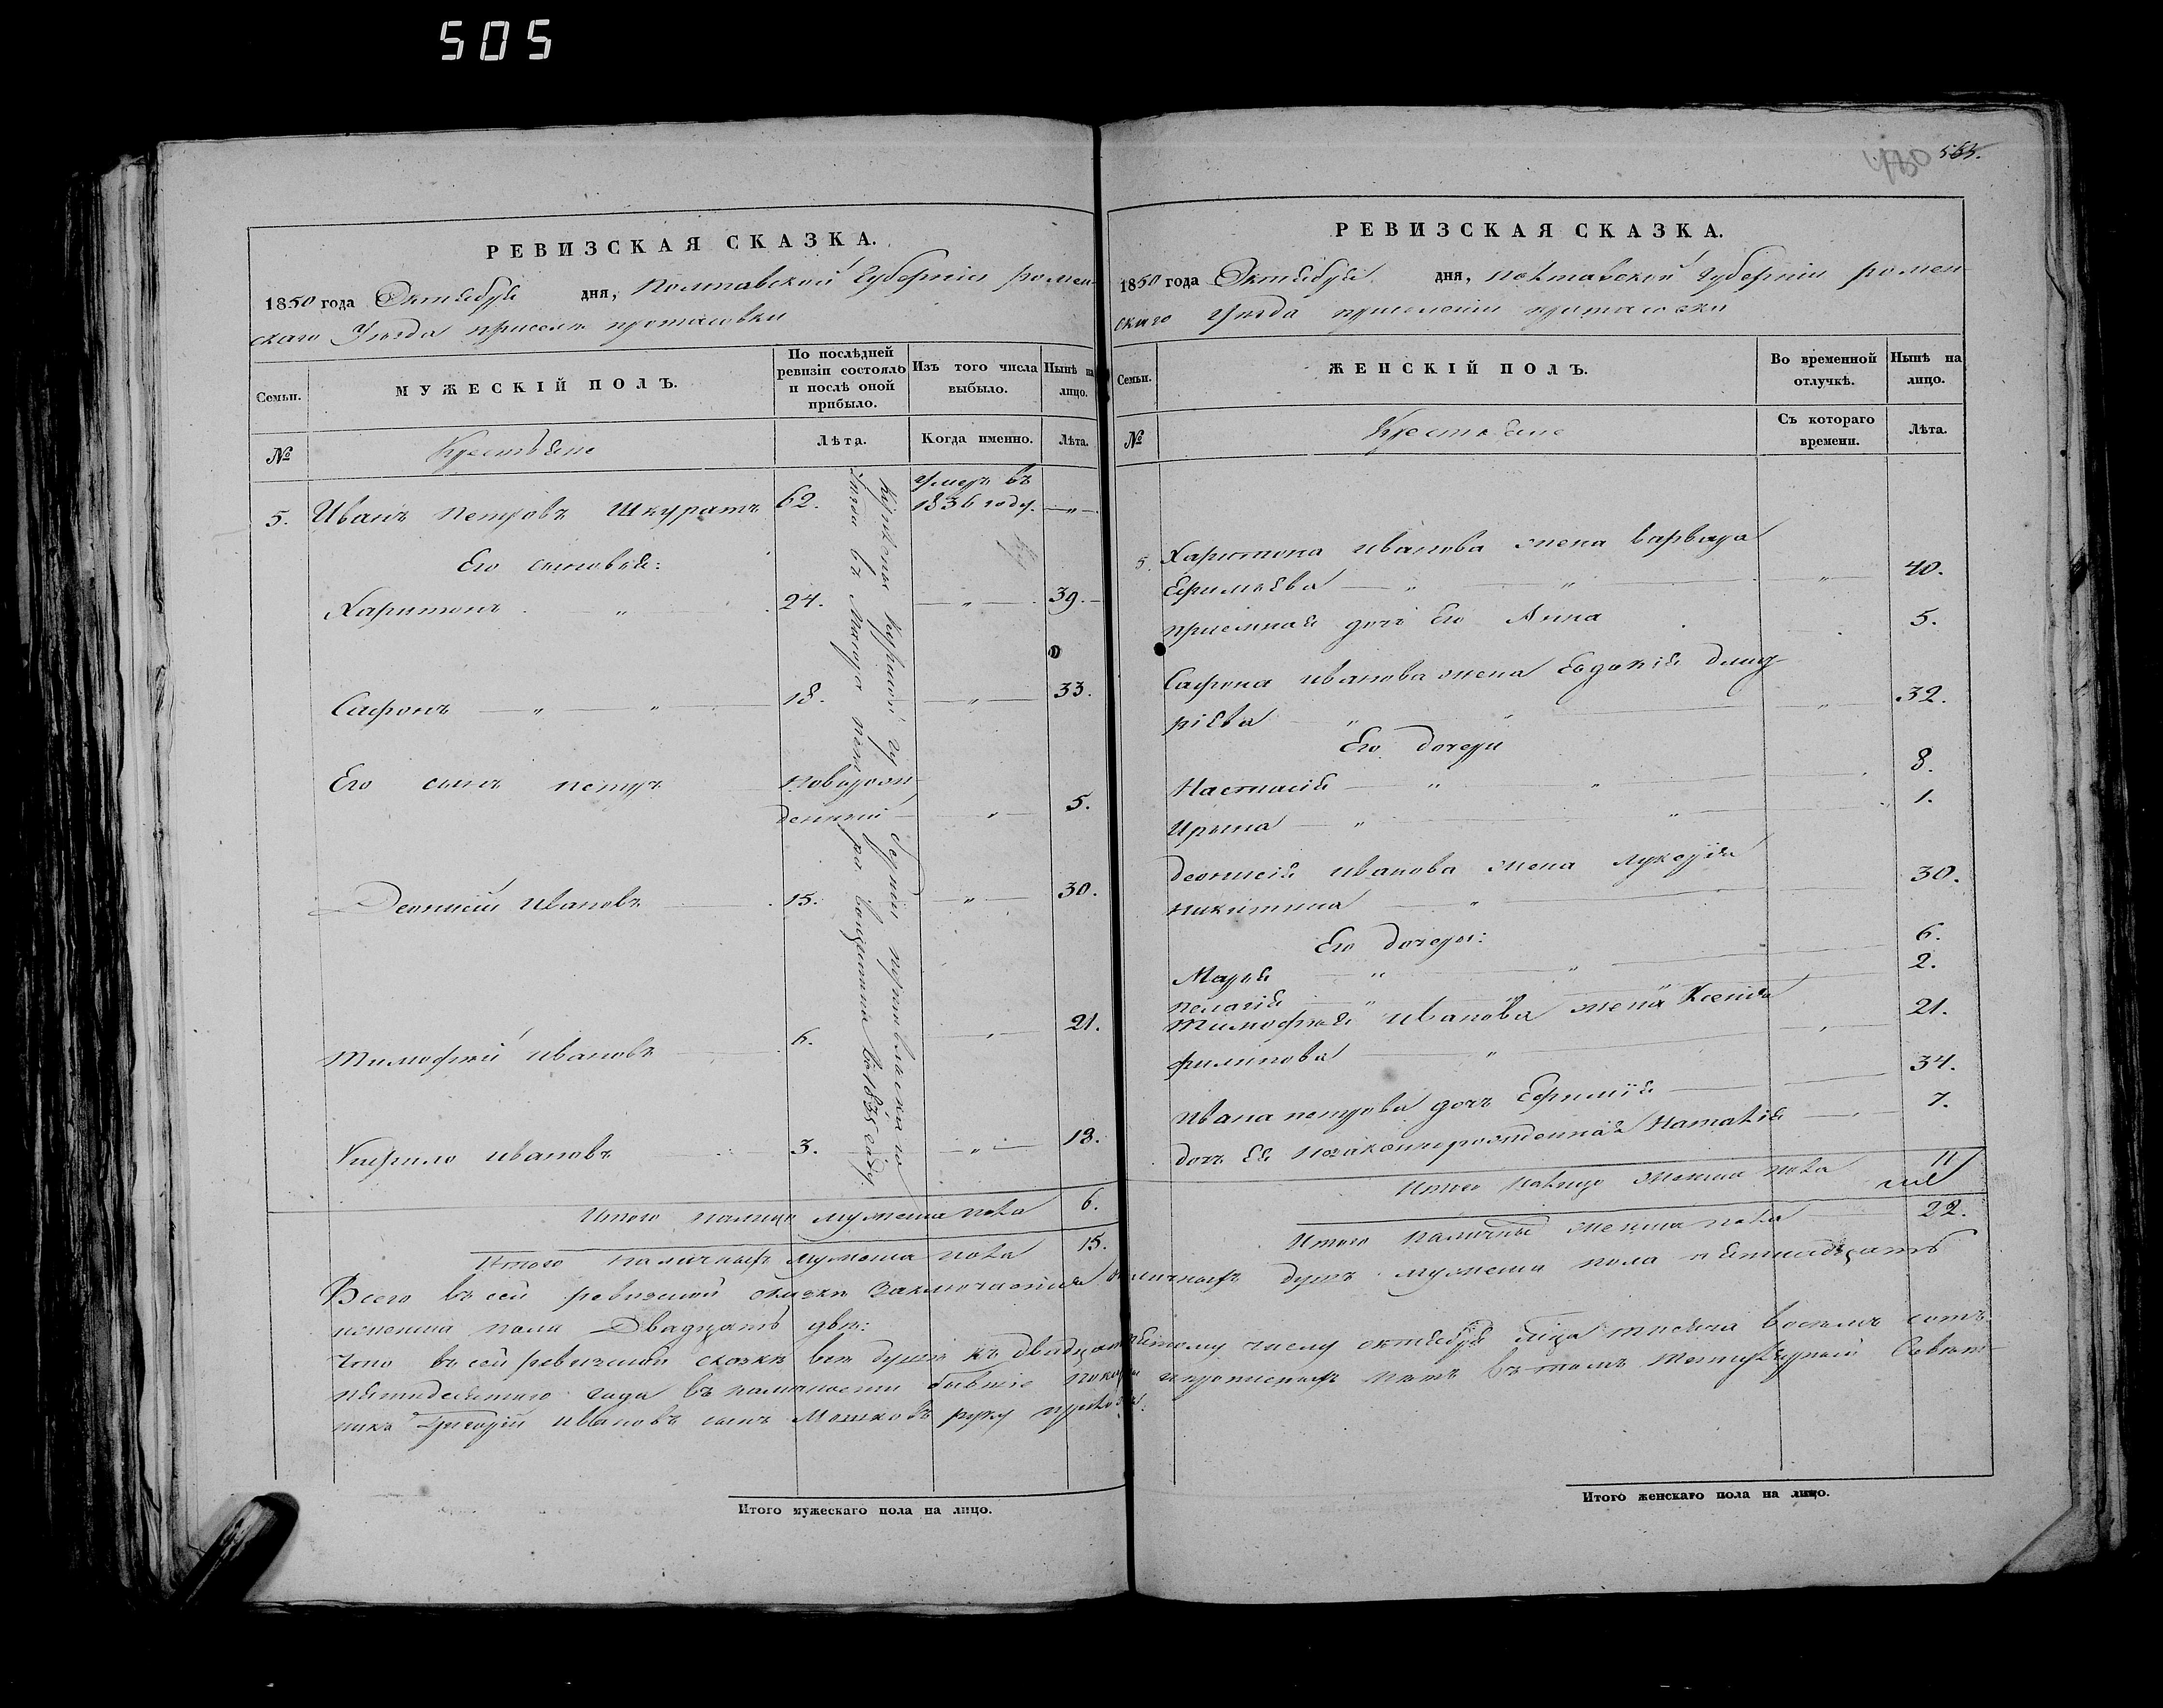 505
РЕВИЗСКАЯ СКАЗКА.
1850 года Октября дня, Полтавской Губерніи ромен-
скаго Уезда
Семьи.
МУЖЕСКІЙ ПОЛЪ.
По послѣдней ревизіи состояло и послѣ оной прибыло.
Изъ того числа выбыло.
Нынѣ на лицо.
№
Крестьяне
Лѣта.
Когда именно.
Лѣта.
5. Иванъ петровъ Шкуратъ 62. умеръ въ 1836 году. — " —
Его сыновья:
Харитонъ " 24. — " — 39.
Сафронъ — " — " — 18. — " — 33.
Его сынъ петръ новорож-
денній — " — 5.
Деонисій Ивановъ 15. — " — 30.
Тимофей ивановъ 6. " 21.
Кирило ивановъ 3. — " — 18.
Итого налицо мужеска пола 6.
Итого наличныхъ мужеска пола 15.
РЕВИЗСКАЯ СКАЗКА.
565.
1850 года Октября дня, полтавской губерніи ромен-
скаго уезда
Семьи.
ЖЕНСКІЙ ПОЛЪ.
Во временной отлучкѣ.
Нынѣ на лицо.
№
Крестьяне
Съ котораго времени.
Лѣта.
5. Харитона иванова жена варвара
— " " " 40.
приемная дочь Его Анна 5.
Сафрона иванова жена Евдокія дмит-
ріева " " " 32.
Его дочери
Настасія — " " 8.
Ирина — " " 1.
деонисія иванова жена лукерія
никитина — " 30.
Его дочери:
Марья " " 6.
пелагія " " 2.
Тимофея иванова жена Ксенія
филипова " 21.
Ивана петрова дочь Ефимія 34.
дочь Ея незаконнорожденная Наталія 7.
Итого налицо женска пола 11
Итого наличныхъ женска пола 22.
Всего въ сей ревизской сказки заключается наличныхъ душъ мужеска пола пятнадцать
женска пола Двадцать две:
Что въ сей ревизской сказки все души къ двадцатпятому числу октября тысяча восемь сотъ
пятидесятого года въ наличности бывшіе показаны и прописныхъ нетъ въ томъ
Григорій Ивановъ сынъ руку приложилъ.
Итого мужескаго пола на лицо.
Итого женскаго пола на лицо.